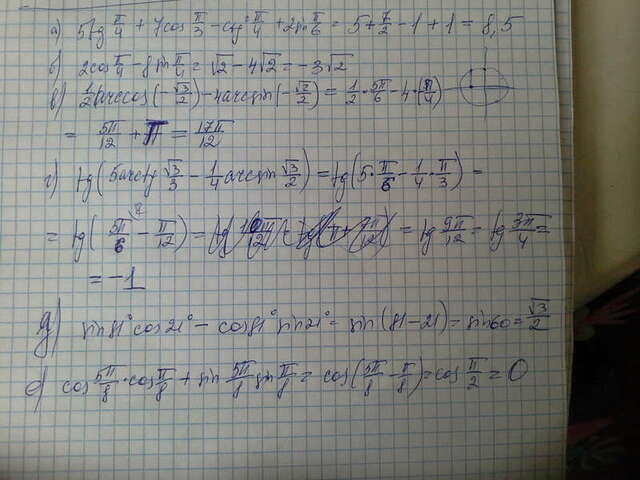 а) 5tg π/4 + 7cos π/3 − ctg² π/4 + 2sin π/6 = 5 + 7/2 − 1 + 1 = 8,5
б) 2cos π/4 − 8 sin π/4 = √2 − 4√2 = −3√2
в) 1/2 arccos(−√3/2) − 4arcsin(−√2/2) = 1/2 · 5π/6 − 4 · (π/4)
= 5π/12 + π = 17π/12
г) tg(5arctg √3/3 − 1/4 arcsin √3/2) = tg(5 · π/6 − 1/4 · π/3) =
= tg(5π/6 − π/12) = = tg 9π/12 = tg 3π/4 =
= −1
д) sin81° cos21° − cos81° sin21° = sin(81−21) = sin60 = √3/2
е) cos 5π/8 · cos π/8 + sin 5π/8 sin π/8 = cos(5π/8 − π/8) = cos π/2 = 0